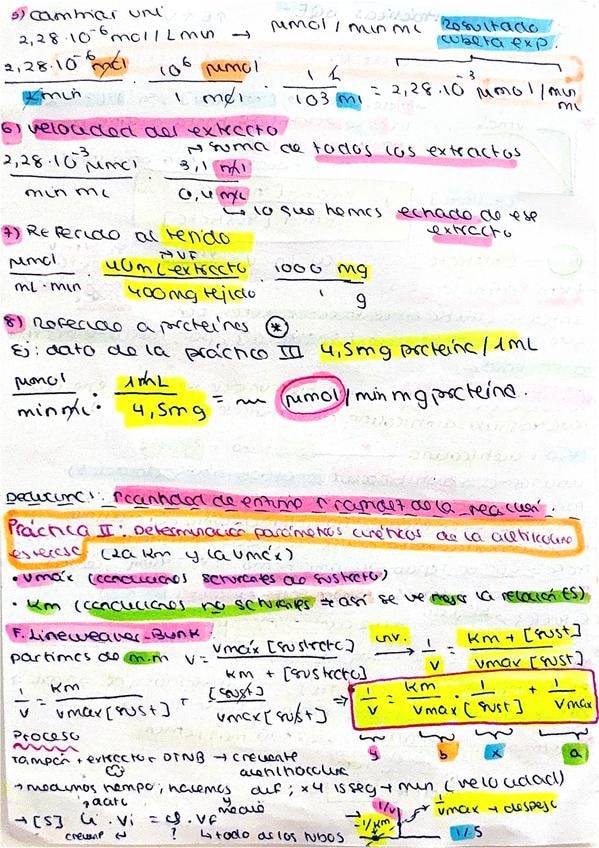 5) cambiar uni
2,28·10⁻⁶ mol/L min → μmol/min mL resultado
cubeta exp.
2,28·10⁻⁶ mol / L min · 10⁶ μmol / 1 mol · 1 L / 10³ ml = 2,28·10⁻³ μmol/min mL
6) velocidad del extracto
2,28·10⁻³ μmol / min mL · 3,1 ml / 0,4 mL → suma de todos los extractos
↳ lo que hemos echado de ese
extracto
7) Referido al tejido
→ VF
μmol / mL·min · 40mL extracto / 400mg tejido · 1000 mg / 1 g
8) Referido a proteínas (*)
Ej: dato de la práctica III 4,5mg proteína/1mL
μmol / min mL : 1mL / 4,5mg = μmol/min mg proteína.
Deducimos: ↑cantidad de enzima ↑rapidez de la reacción.
Práctica II: Determinación parámetros cinéticos de la acetilcolina
esterasa (la Km y la Vmáx)
• Vmáx (condiciones saturantes de sustrato)
• Km (condiciones no saturantes → así se ve mejor la relación ES)
F. Lineweaver-Burk
partimos de m.m V = Vmáx [sustrato] / Km + [sustrato] inv. → 1/V = Km + [sust] / Vmax [sust]
1/V = Km / Vmax [sust] + [sust] / Vmax [sust] ⇒ 1/V = Km / Vmax · 1 / [sust] + 1 / Vmax
y b x a
Proceso
Tampón + extracto + DTNB →
acetilcolina
→ medimos tiempo, hacemos dif; x4 15 seg → min (velocidad)
→ [S] Ci · Vi = Cf · VF
? ↳ todo de los tubos
1/V
-1/Km
1/Vmax → despejo
1/S